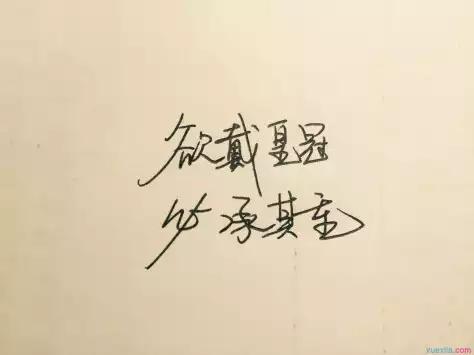 欲戴皇冠
必承其重
yuexila.com